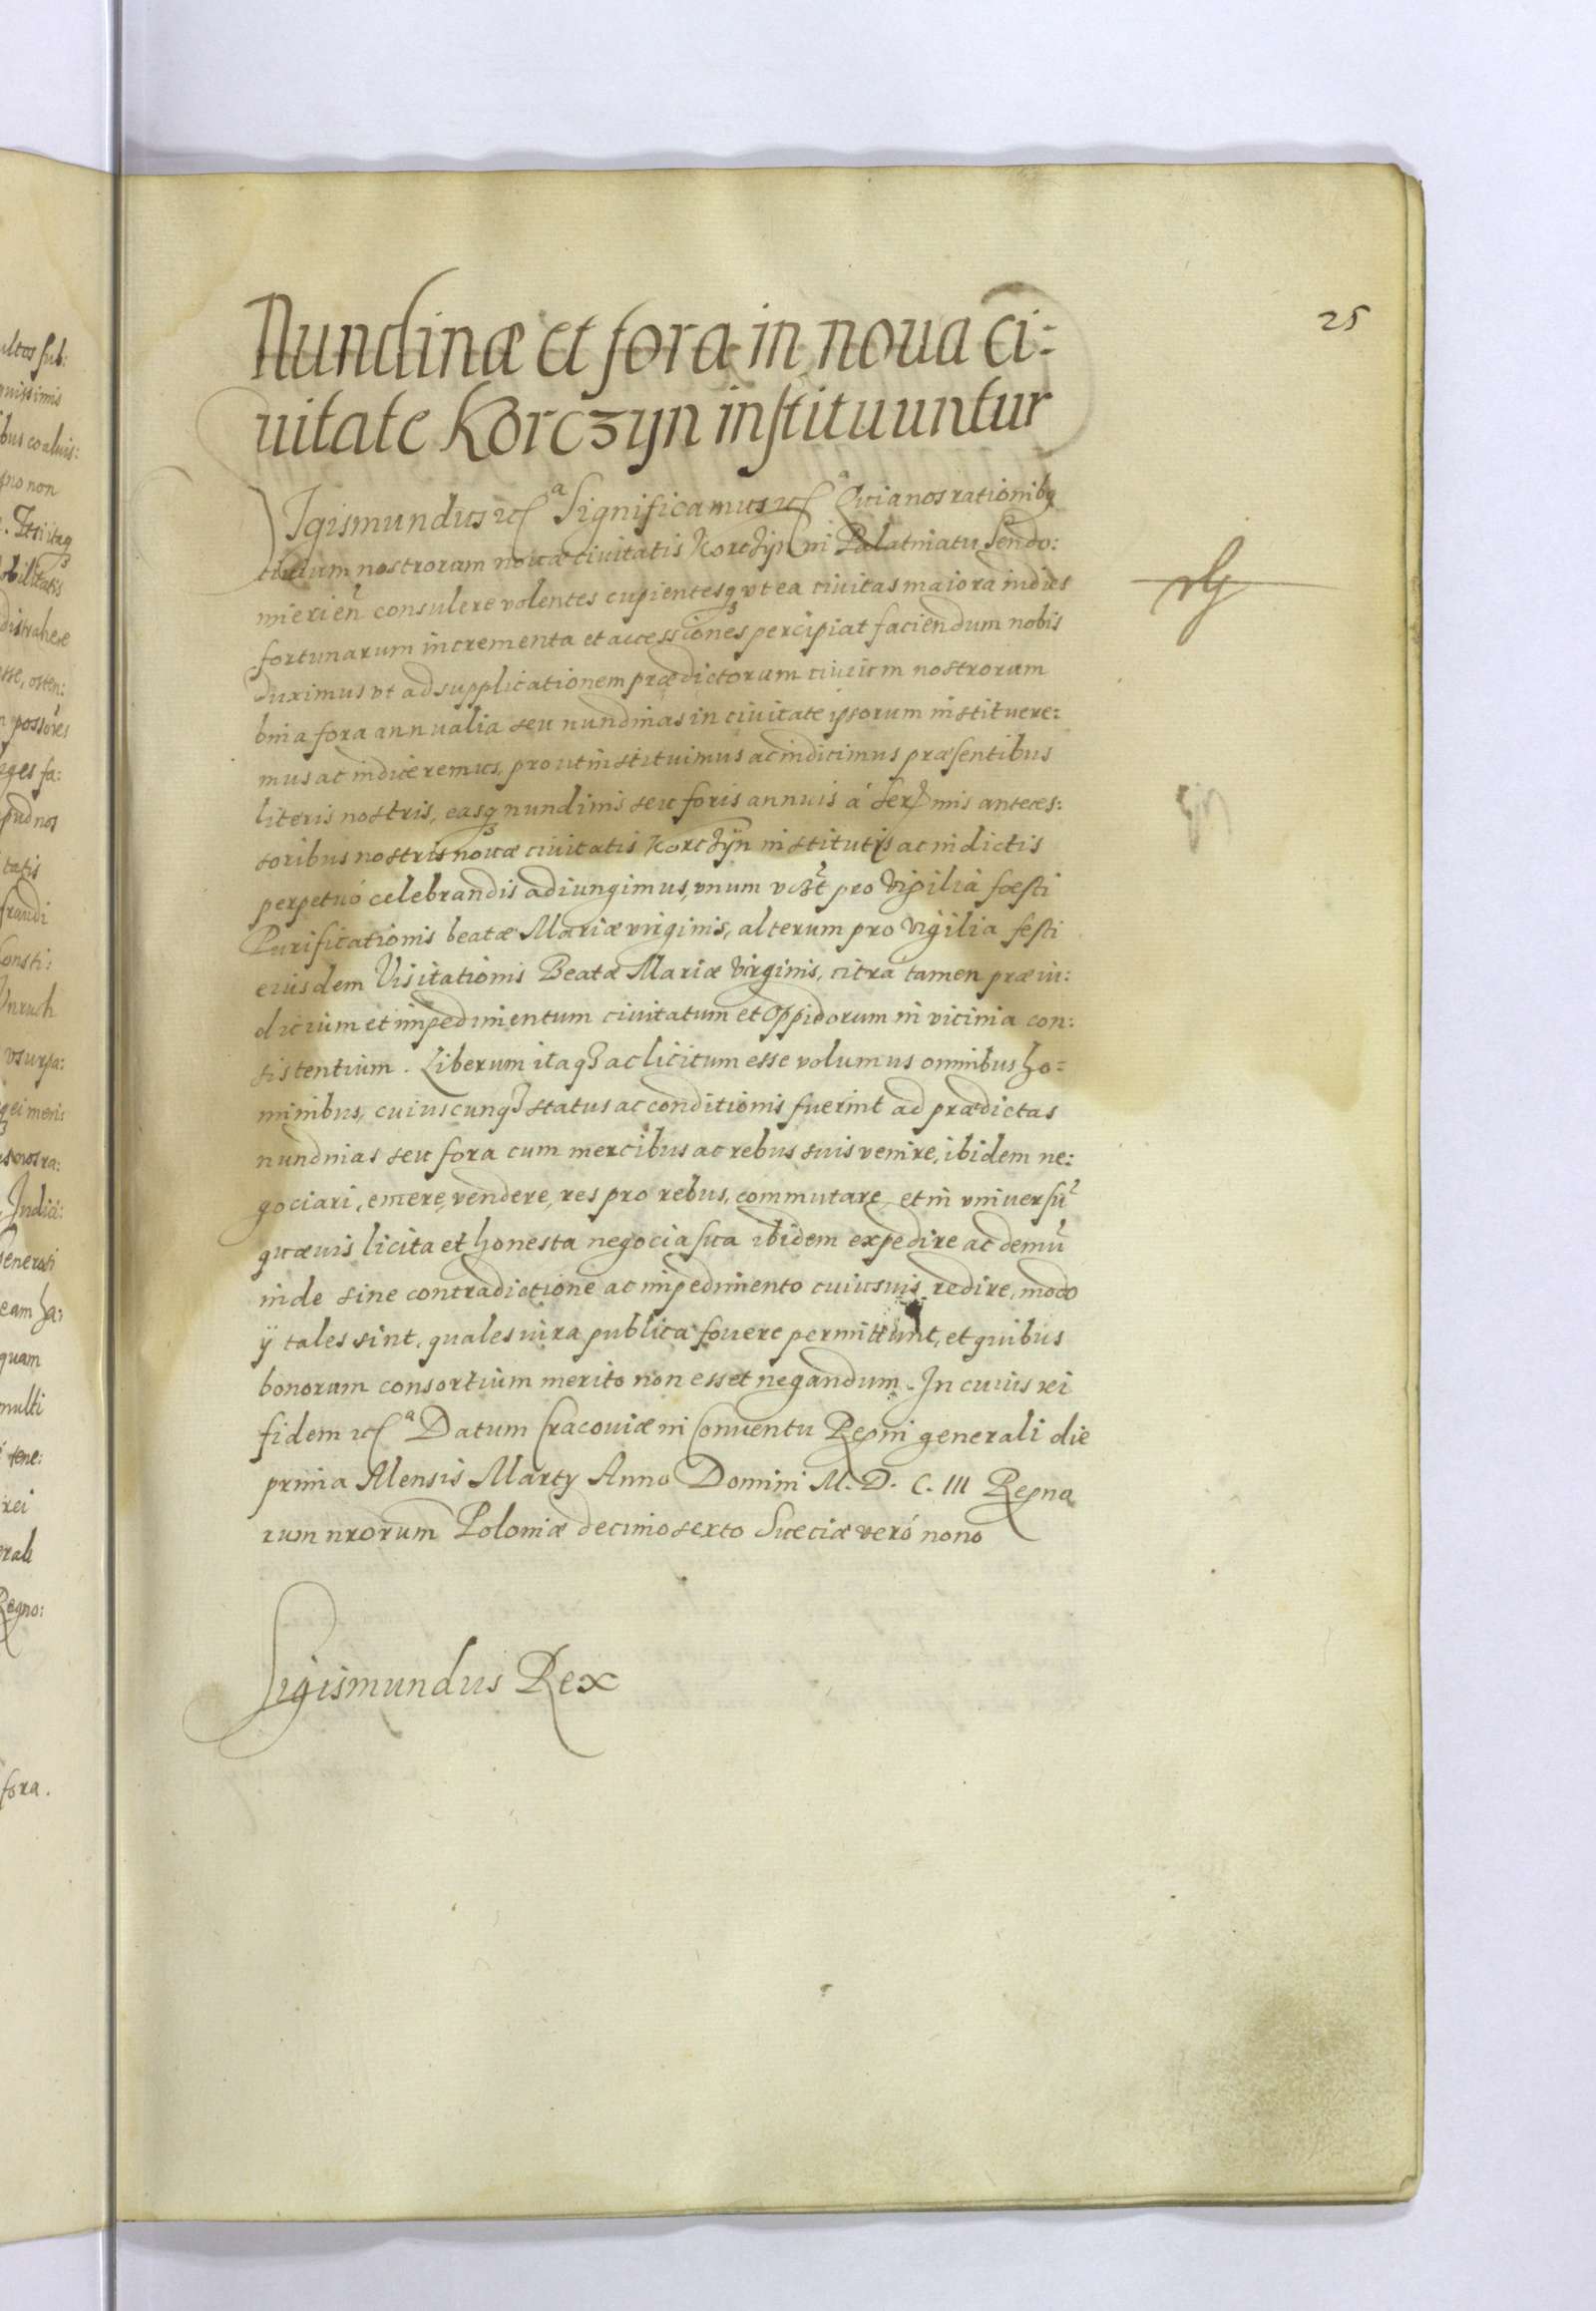 25
Nundinæ et fora in noua ci:
uitate Korczyn instituuntur
Sigismundus etc<sup>a</sup> Significamus etc<sup>a</sup> Quia nos rationibq
ciuium nostrorum nouæ ciuitatis Korczÿn in Palatinatu Sendo:
mirien consulere volentes cupientesq vt ea ciuitas maiora indies
fortunarum incrementa et accessiones percipiat faciendum nobis
duximus vt ad supplicationem prædictorum ciuium nostrorum
bina fora annualia seu nundinas in ciuitate ipsorum instituere:
mus ac indiceremus, prout instituimus ac indicimus præsentibus
literis nostris, easq nundinis seu foris annuis á Sermis anteces:
soribus nostris nouæ ciuitatis Korczÿn institutis ac indictis
perpetuó celebrandis adiungimus, vnum vczt pro Vigilia fœsti
Purificationis beatæ Mariæ virginis, alterum pro Vigilia festi
eiusdem Visitationis Beatæ Mariæ Virginis, citrá tamen præiu:
dicium et impedimentum ciuitatum et Oppidorum in vicinia con:
sistentium. Liberum itaq ac licitum esse volumus omnibus ho=
minibus, cuiuscunq status ac conditionis fuerint ad prædictas
nundinas seu fora cum mercibus ac rebus suis venire, ibidem ne:
gociari, emere, vendere, res pro rebus, commutare, et in vniuersũ
quæuis licita et honesta negocia sua ibidem expedire ac demũ
inde sine contradictione ac impedimento cuiusuis redire, modo
ÿ tales sint, quales iura publica fouere permittunt, et quibus
bonorum consortium merito non esset negandum. In cuius rei
fidem etc<sup>a</sup> Datum Cracouiæ in Conuentu Regni generali die
prima Mensis Martÿ Anno Domini M.D.C.III Regno
rum nrorum Poloniæ decimo sexto Sueciæ veró nono
Sigismundus Rex